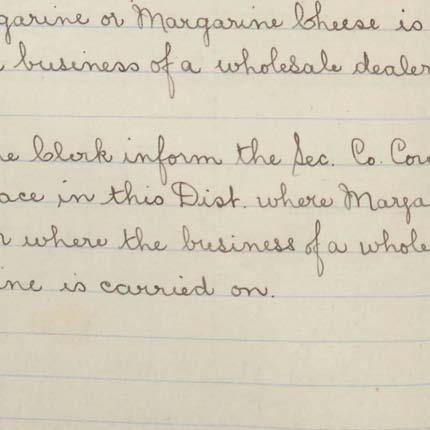 garine or Margarine Cheese is
business of a wholesale dealer
e Clerk inform the Sec. Co. Cou
ace in this Dist. where Marga
where the business of a whole
ine is carried on.